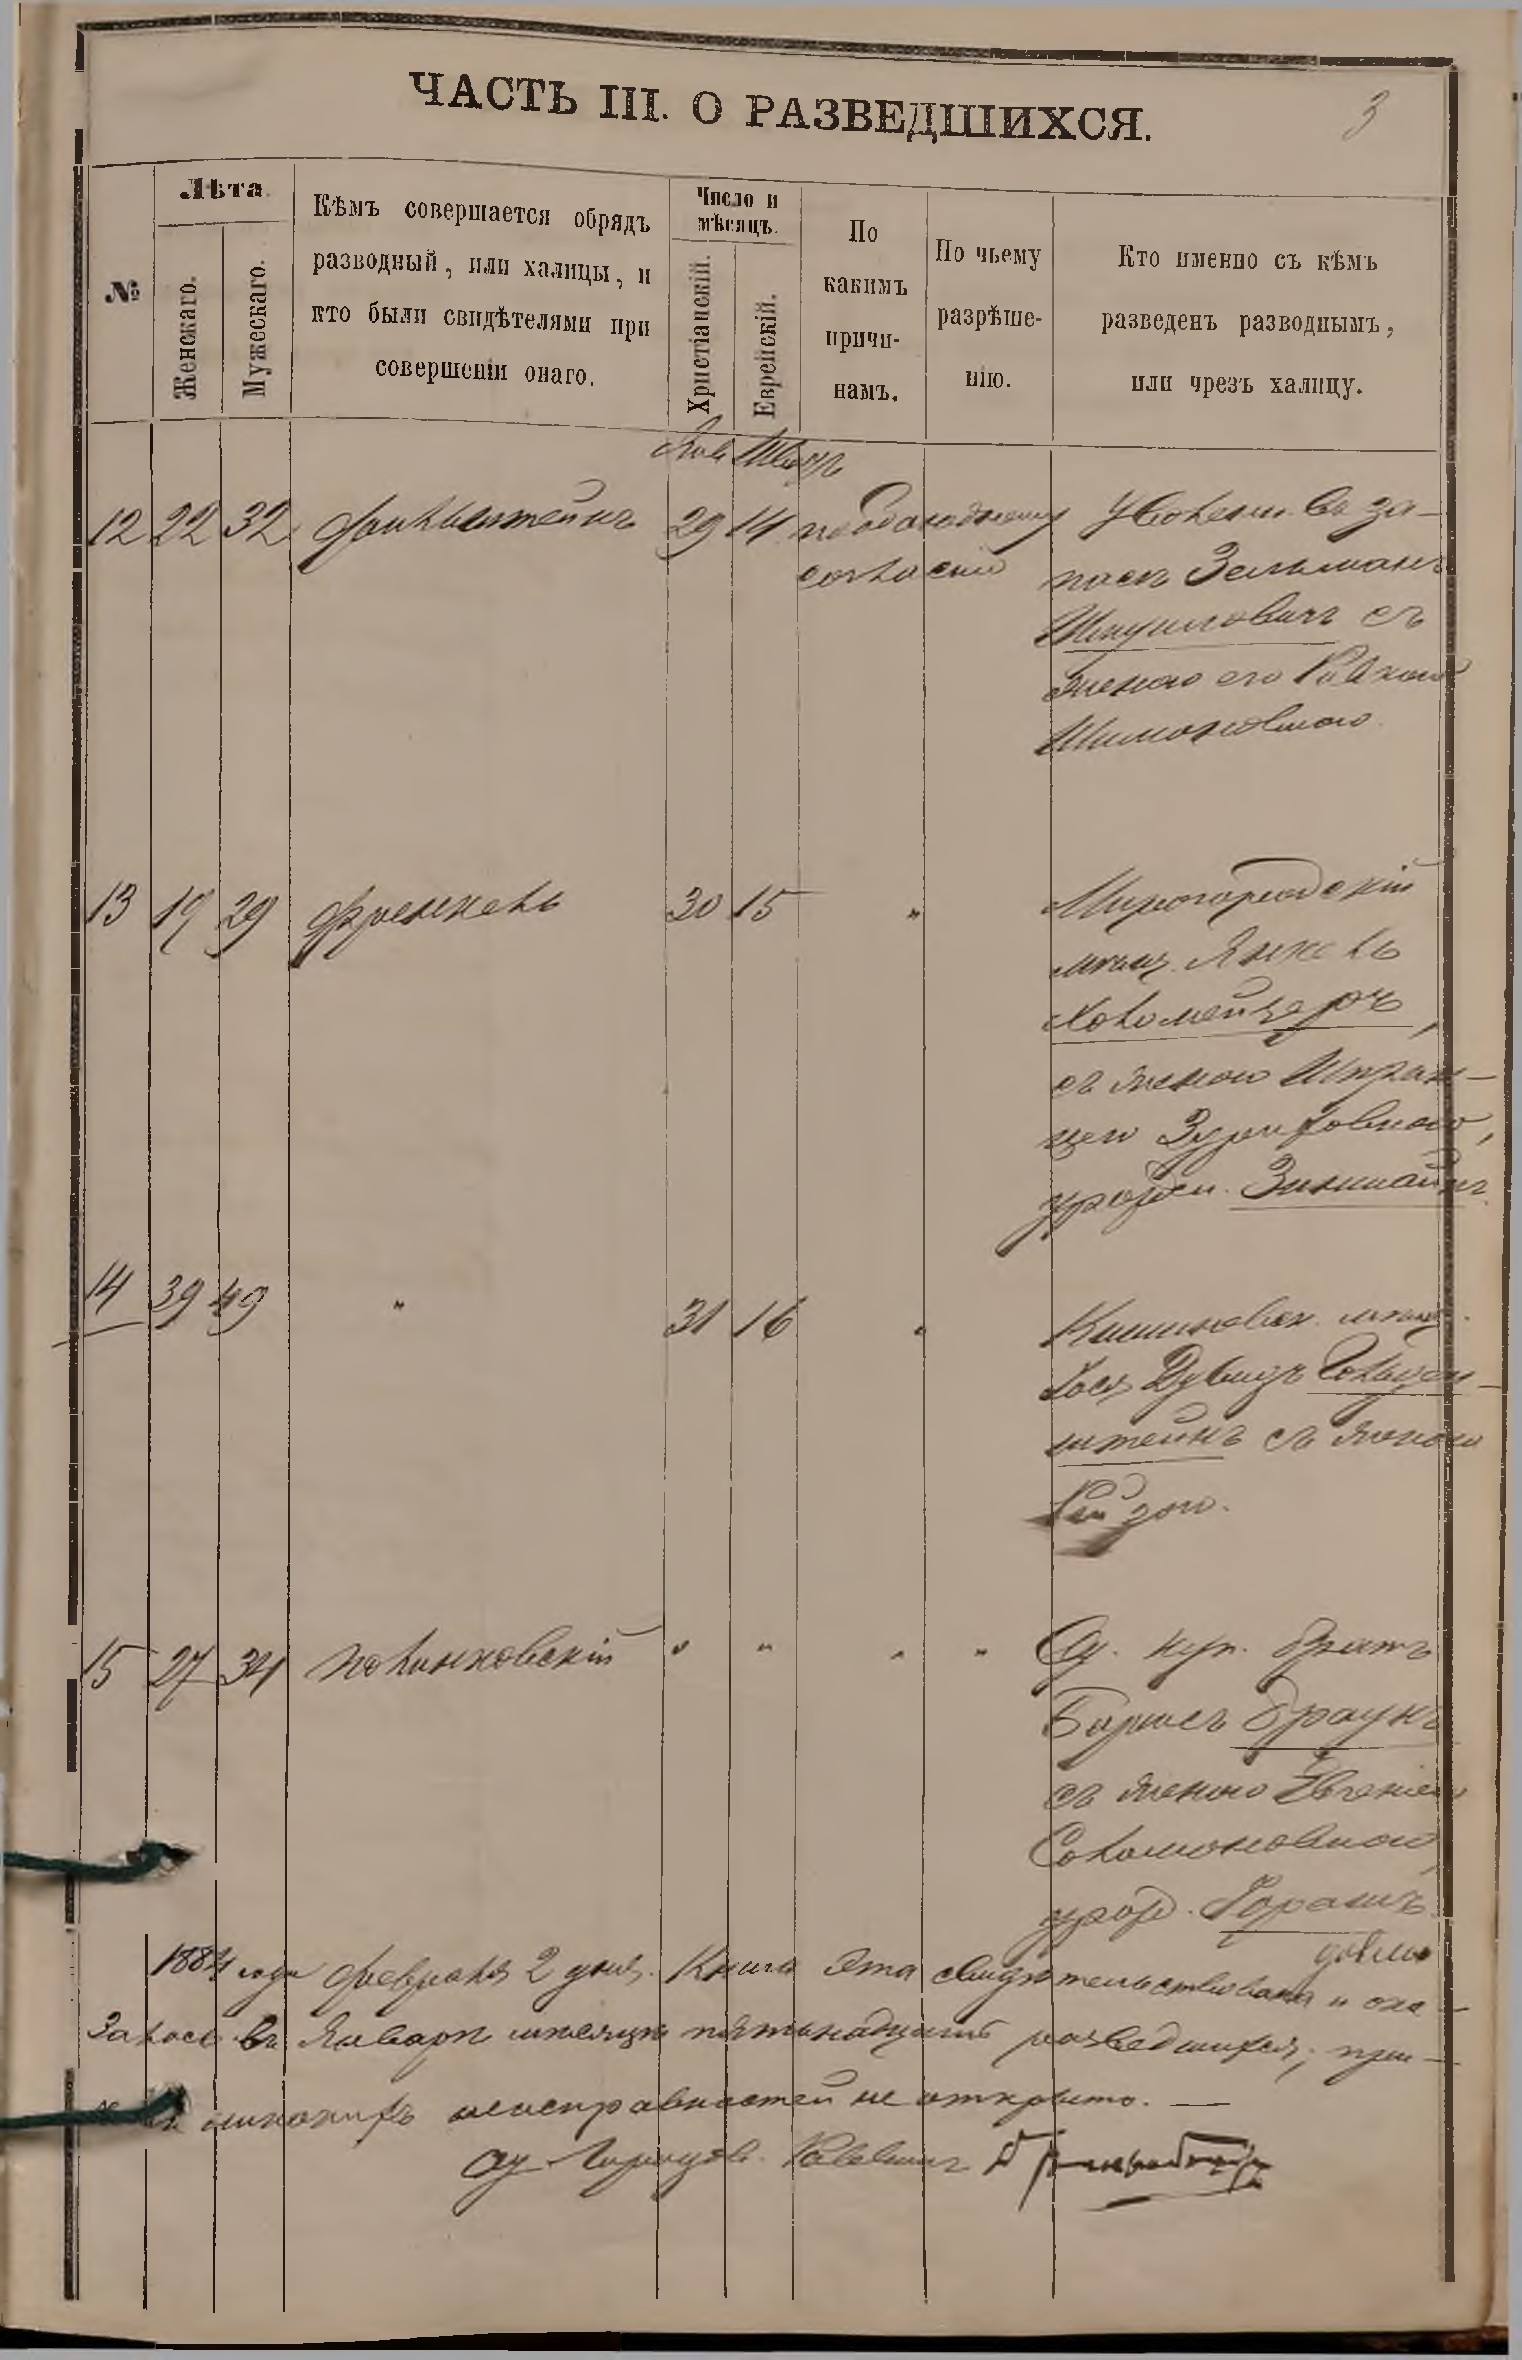 ЧАСТЬ III. О РАЗВЕДШИХСЯ.
3
№
Лѣта.
Женскаго.
Мужескаго.
Кѣмъ совершается обрядъ
разводный, или халицы, и
кто были свидѣтелями при
совершеніи онаго.
Число и
мѣсяцъ.
Христіанскій.
Еврейскій.
По
какимъ
причи-
намъ.
По чьему
разрѣше-
нію.
Кто именно съ кѣмъ
разведенъ разводнымъ,
или чрезъ халицу.
Янв Шватъ
12 22 32 Финкельштейнъ 29 14 по обоюдному Уволен. въ за-
согласію пасъ Зельманъ
Шмуиловичъ съ
женою его Ривкою
Шимоновною.
13 19 29 Френкель 30 15 " Миргородскій
мѣщ. Янкель
Холомензеръ,
съ женою Шприн-
цею
урожден.
14 39 49 " 31 16 " Кишиневск. мѣщ.
Іось Дувидъ Гольден-
штейнъ съ женою
Рейзою.
15 27 34 Полинковскій " " " " Од. куп. братъ
Борисъ Браунъ
съ женою Евгеніею
Соломоновною,
урод. Горашъ.
1884 года Февраля 2 дня. Книга эта свидѣтельствована и ока-
залось въ Январѣ мѣсяцѣ пятьнадцать разведшихся; при-
неисправностей не открыто.
Од. Городов. Раввинъ